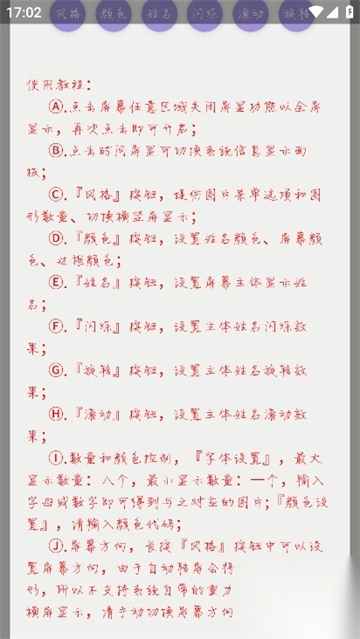 17:02
风格 颜色 姓名 闪烁 滚动 旋转
使用教程：
Ⓐ.点击屏幕任意区域关闭屏显功能以全屏
显示，再次点击即可开启；
Ⓑ.点击时间屏显可切换系统信息显示面
板；
Ⓒ.『风格』按钮，提供图片菜单选项和图
形数量、切换横竖屏显示；
Ⓓ.『颜色』按钮，设置姓名颜色、屏幕颜
色、边框颜色；
Ⓔ.『姓名』按钮，设置屏幕主体显示姓
名；
Ⓕ.『闪烁』按钮，设置主体姓名闪烁效
果；
Ⓖ.『旋转』按钮，设置主体姓名旋转效
果；
Ⓗ.『滚动』按钮，设置主体姓名滚动效
果；
Ⓘ.数量和颜色控制，『字体设置』，最大
显示数量：八个，最小显示数量：一个，输入
字母或数字即可得到与之对应的图片；『颜色设
置』，请输入颜色代码；
Ⓙ.屏幕方向，长按『风格』按钮中可以设
置屏幕方向，由于自动转屏会变
形，所以不支持系统自带的重力
横屏显示，请手动切换屏幕方向